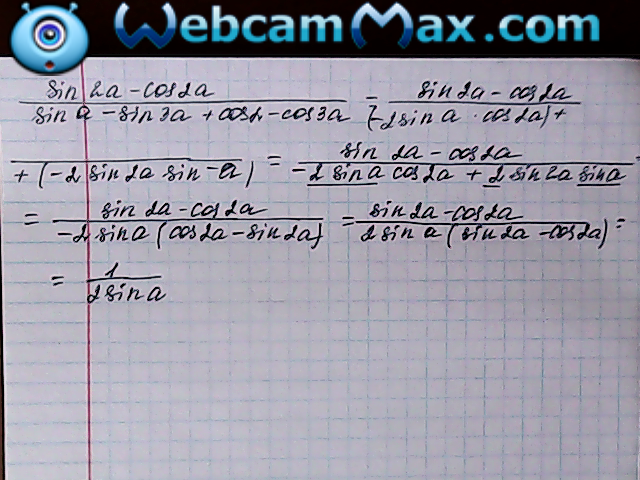 WebcamMax.com
sin 2a - cos2a / sin a - sin 3a + cos a - cos 3a = sin 2a - cos 2a / (-2 sin a · cos 2a) +
+ (-2 sin 2a sin -a) = sin 2a - cos 2a / -2 sin a cos 2a + 2 sin 2a sin a =
= sin 2a - cos 2a / -2 sin a (cos 2a - sin 2a) = sin 2a - cos 2a / 2 sin a (sin 2a - cos 2a) =
= 1 / 2 sin a